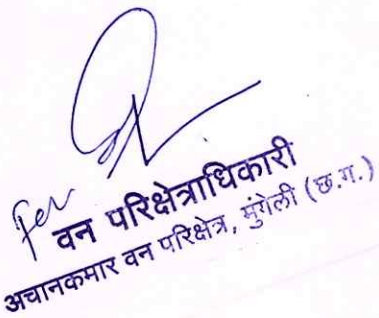 For
वन परिक्षेत्राधिकारी
अचानकमार वन परिक्षेत्र, मुंगेली (छ.ग.)